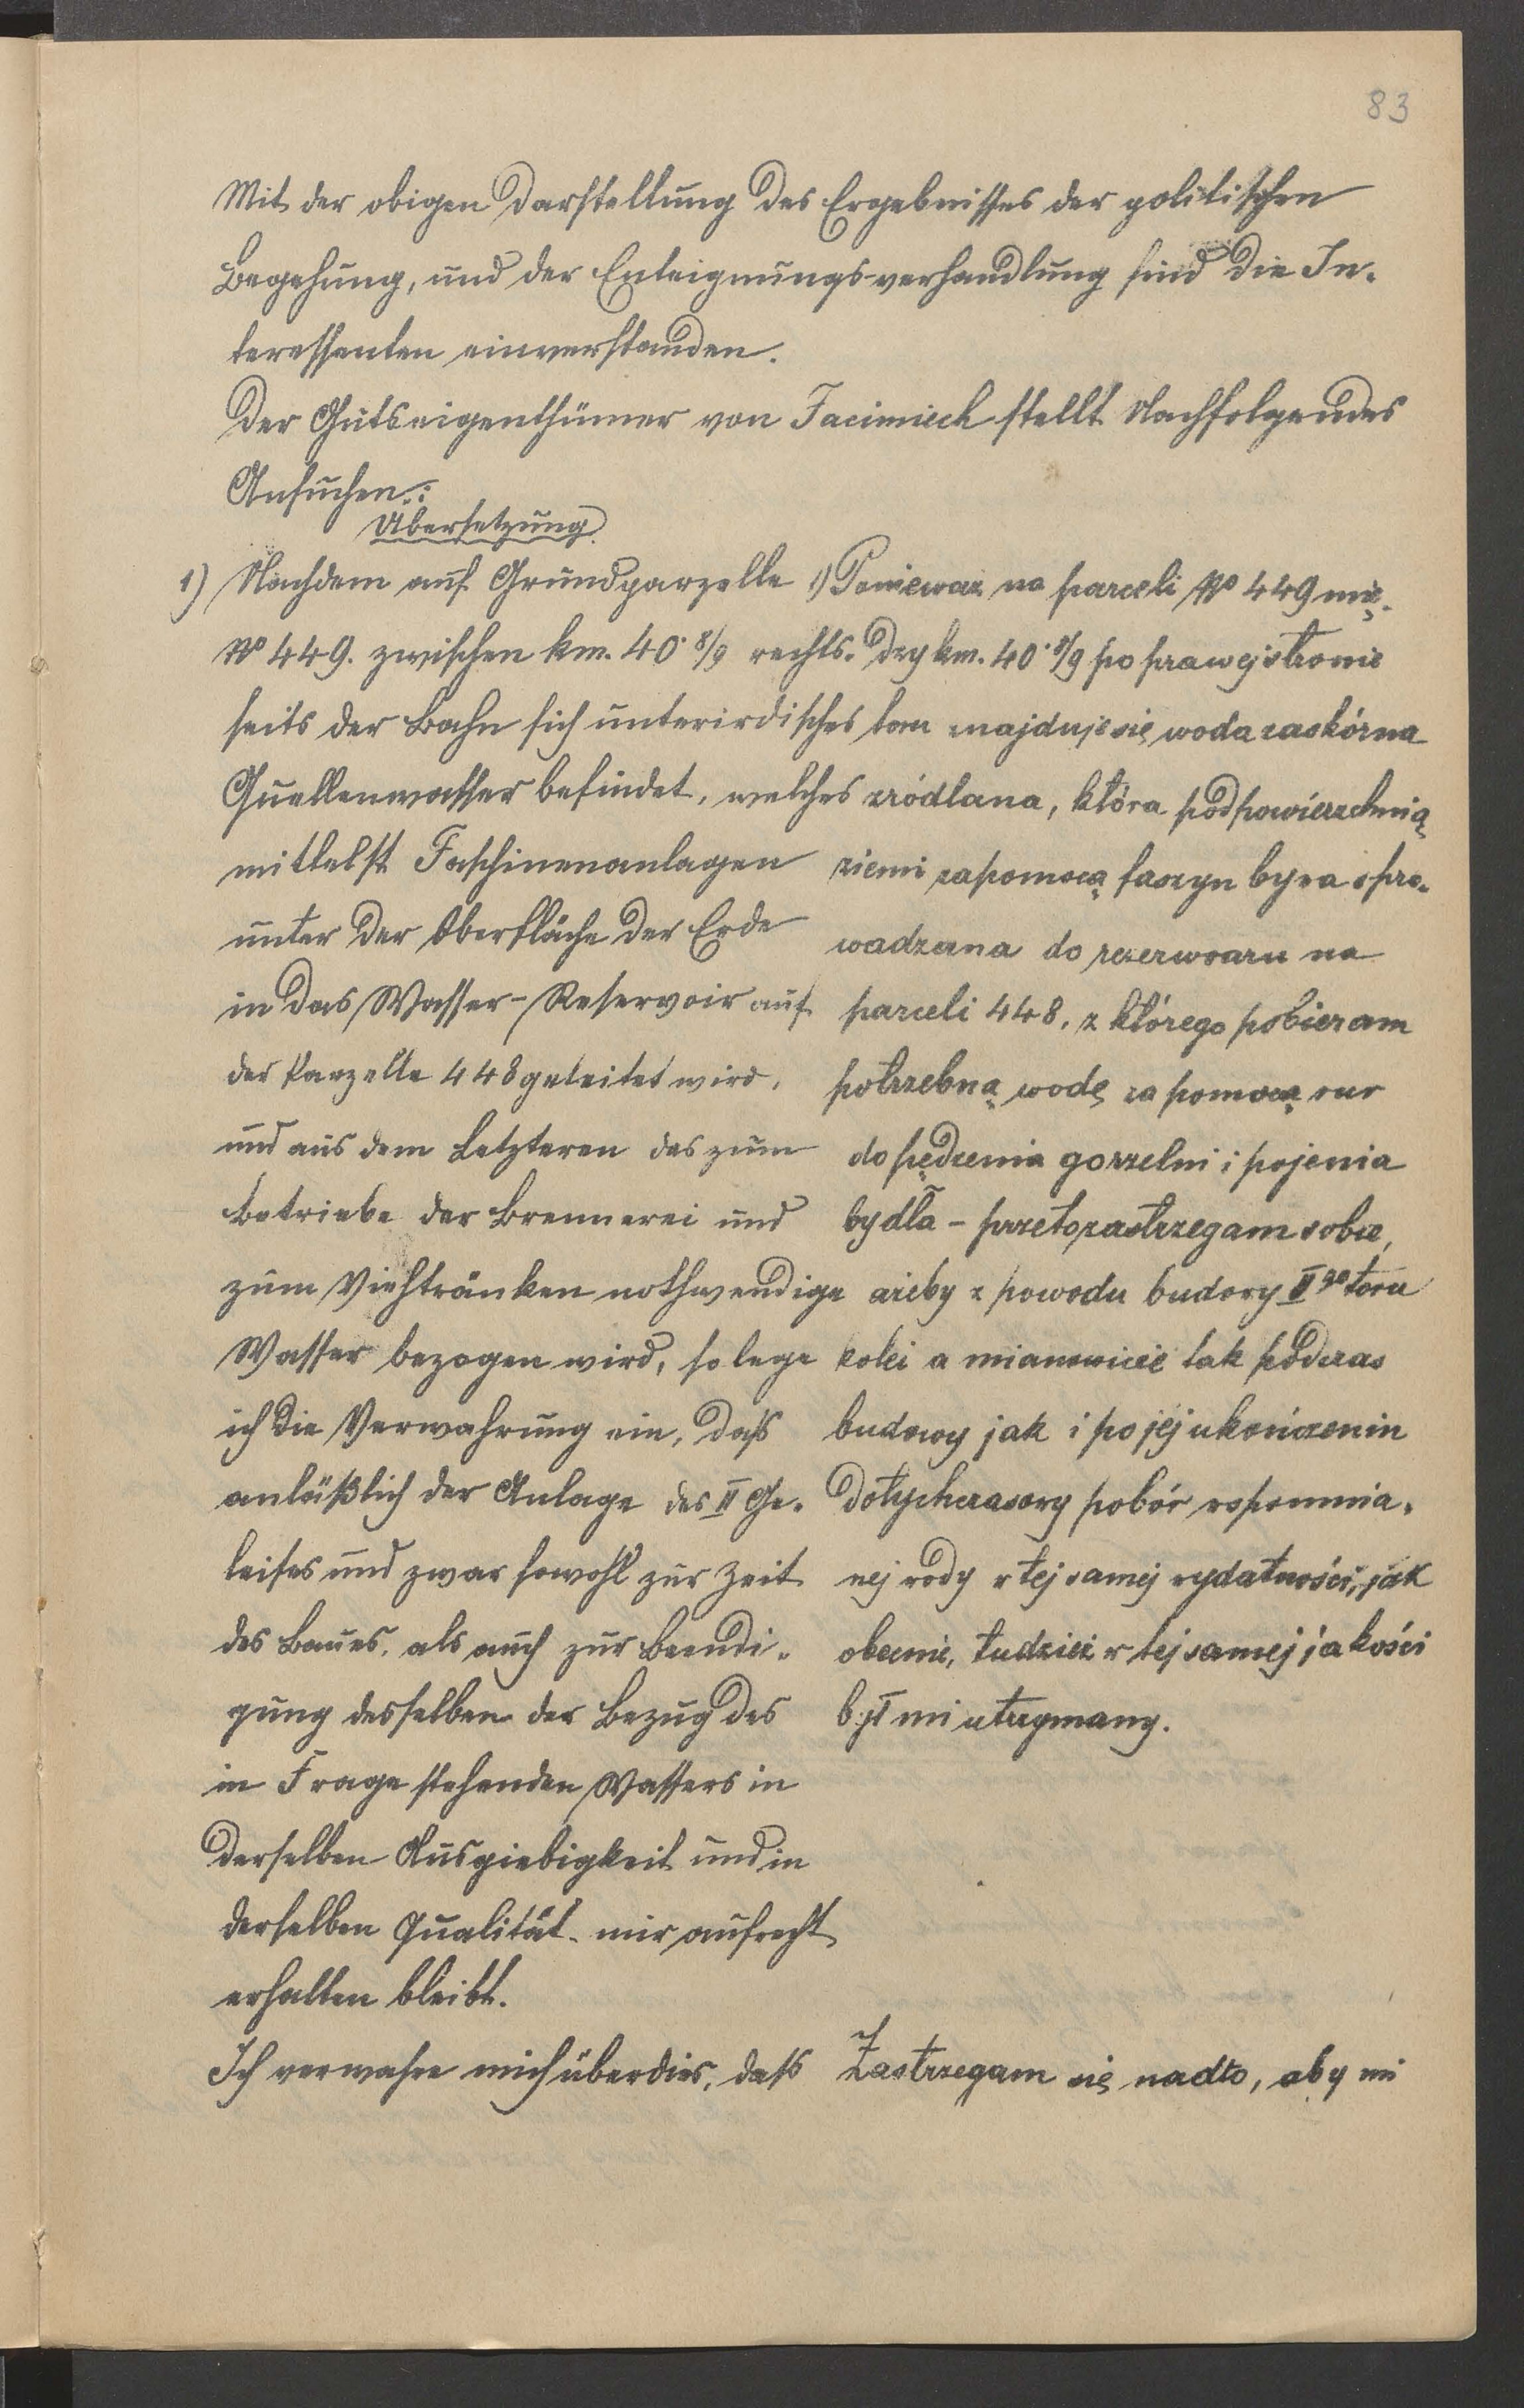 83
Mit der obigen Darstellung des Ergebnisses der politischen
Begehung, und der Enteignungsverhandlung sind die In-
teressenten einverstanden.
Der Gutseigenthümer von Jacimiech stellt Nachfolgendes
Ansuchen:
Übersetzung
1) Nachdem auf Grundparzelle
No 449. zwischen km. 40·8/9 rechts-
seits der Bahn sich unterirdisches
Quellenwasser befindet, welches
mittelst Faschinenanlagen
unter der Oberfläche der Erde
in das Wasser-Reservoir auf
der Parzelle 448 geleitet wird,
und aus dem Letzteren das zum
Betriebe der Brennerei und
zum Viehtränken nothwendige
Wasser bezogen wird, so lege
ich die Verwahrung ein, daß
anläßlich der Anlage des II Ge-
leises und zwar sowohl zur Zeit
des Baues, als auch zur Beendi-
gung desselben der Bezug des
in Frage stehenden Wassers in
derselben Ausgiebigkeit und in
derselben Qualität mir aufrecht
erhalten bleibt.
Ich verwahre mich überdies, daß
1) Poniewaz na parceli No 449 mię-
dzy km. 40·8/9 po prawej stronie
toru znajduje się woda zaskórna
zródlana, która pod powierzchnią
ziemi zapomocą faszyn bywa spro-
wadzana do rezerwoaru na
parceli 448, z którego pobieram
potrzebną wodę za pomocą rur
do pędzenia gorzelni i pojenia
bydła - przeto zastrzegam sobie,
ażeby z powodu budowy II go toru
kolei a mianowicie tak podczas
budowy jak i po jej ukończeniu
dotychczasowy pobór wspomnia-
nej wody w tej samej wydatności, jak
obecnie, tudzież w tej samej jakości
był mi utrzymany.
Zastrzegam się nadto, aby mi